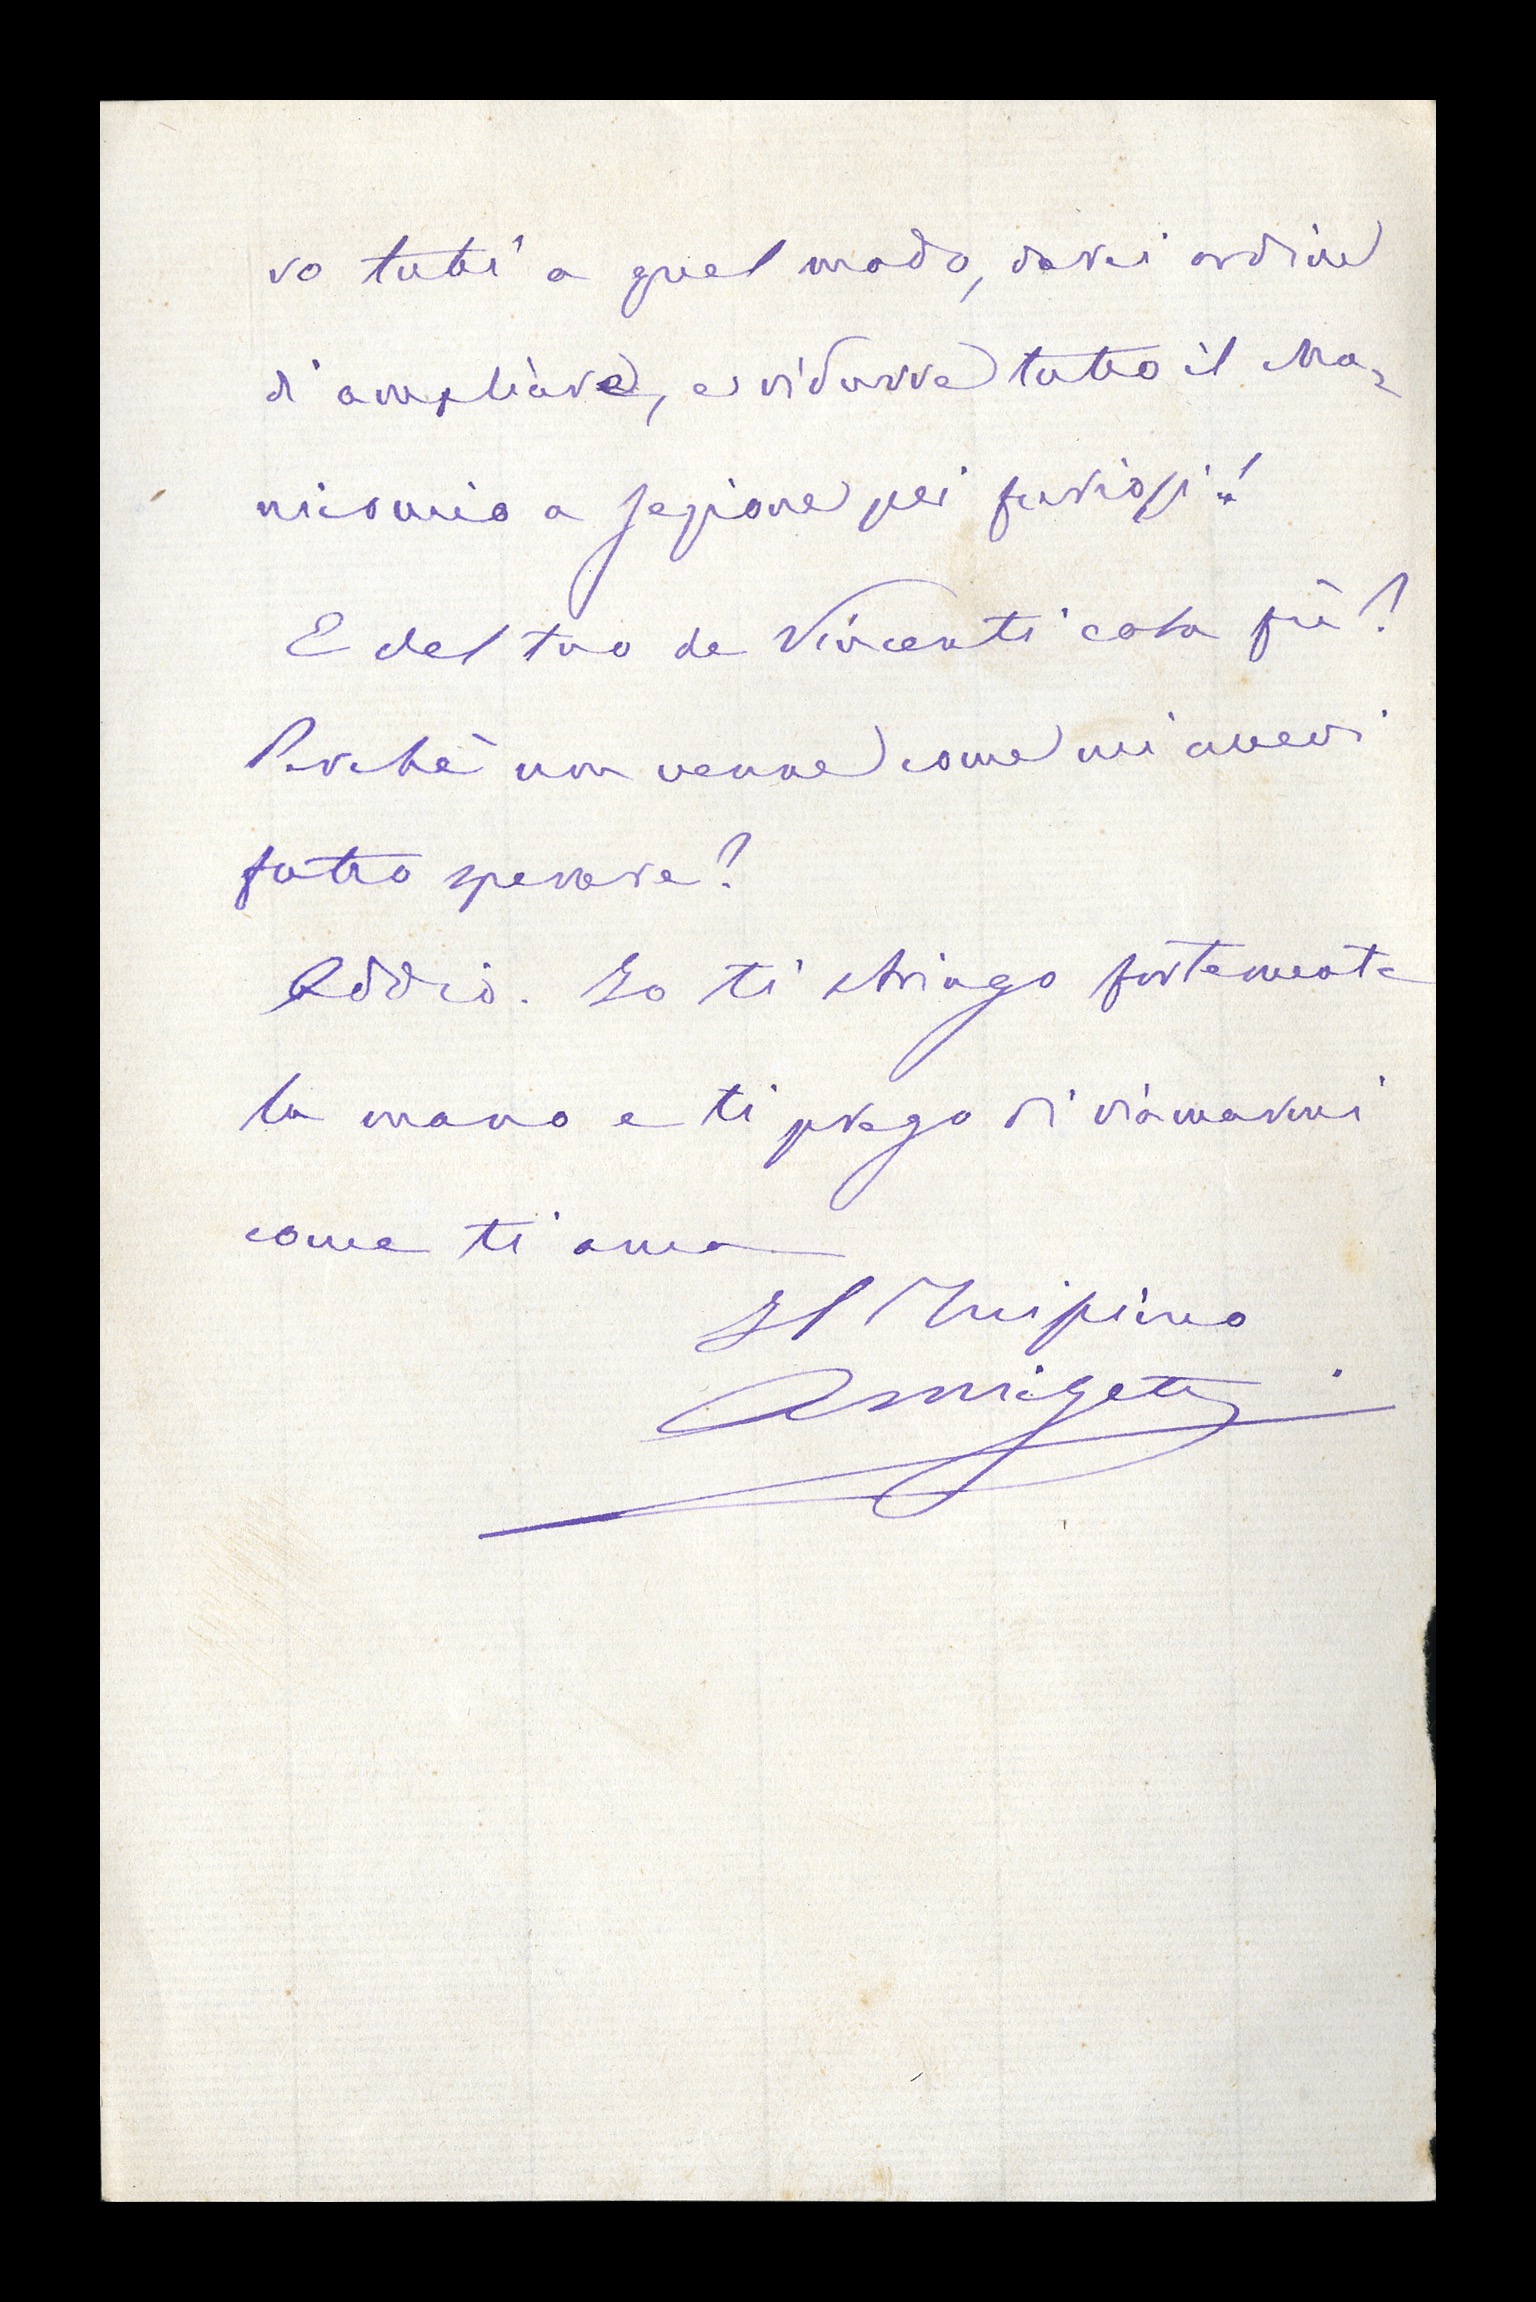 ro tutti a quel modo, darei ordine
di ampliare, e ridurre tutto il Ma-
nicomio a sezione pei furiosi!
E del tuo de Vincenti cosa fu?
Perchè non venne come mi avevi
fatto sperare?
Addio. Io ti stringo fortemente
la mano e ti prego di riamarmi
come ti ama
Il